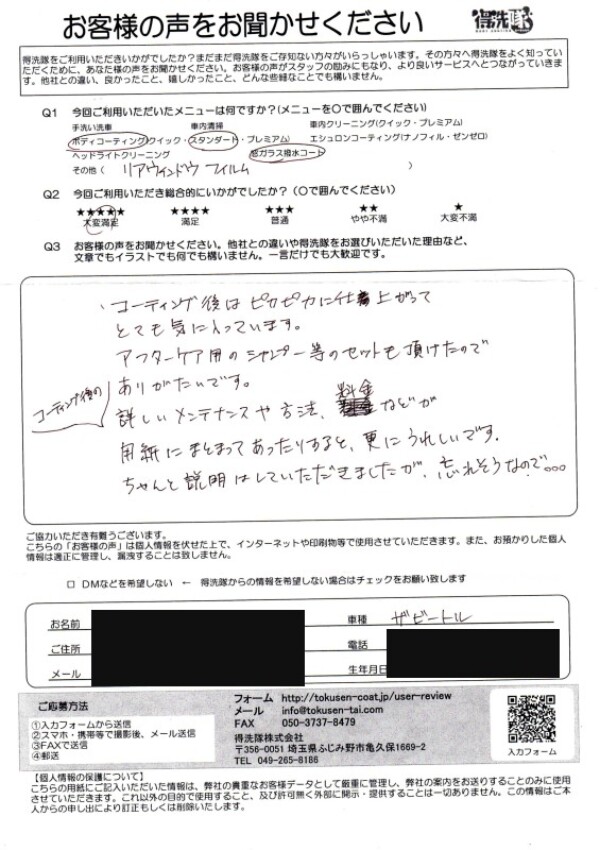 お客様の声をお聞かせください
得洗隊
得洗隊をご利用いただきいかがでしたか?まだまだ得洗隊をご存知ない方々がいらっしゃいます。その方々へ得洗隊をよく知って
いただくために、あなた様の声をお聞かせください。お客様の声がスタッフの励みにもなり、より良いサービスへとつながっていきま
す。他社との違い、良かったこと、嬉しかったこと、どんな些細なことでも構いません。
Q1 今回ご利用いただいたメニューは何ですか?(メニューを○で囲んでください)
手洗い洗車 車内清掃 車内クリーニング(クイック・プレミアム)
ボディコーティング(クイック・スタンダード・プレミアム) エシュロンコーティング(ナノフィル・ゼンゼロ)
ヘッドライトクリーニング 窓ガラス撥水コート
その他( リアウィンドウ フィルム )
Q2 今回ご利用いただき総合的にいかがでしたか?(○で囲んでください)
★★★★★ ★★★★ ★★★ ★★ ★
大変満足 満足 普通 やや不満 大変不満
Q3 お客様の声をお聞かせください。他社との違いや得洗隊をお選びいただいた理由など、
文章でもイラストでも何でも構いません。一言だけでも大歓迎です。
・コーティング後はピカピカに仕上がって
とても気に入っています。
アフターケア用のシャンプー等のセットも頂けたので
ありがたいです。
コーティング後の
詳しいメンテナンスや方法、料金などが
用紙にまとまってあったりすると、更にうれしいです。
ちゃんと説明はしていただきましたが、忘れそうなので…
ご協力いただき有難うございます。
こちらの「お客様の声」は個人情報を伏せた上で、インターネットや印刷物等で使用させていただきます。また、お預かりした個人
情報は適正に管理し、漏洩することは致しません。
□ DMなどを希望しない ← 得洗隊からの情報を希望しない場合はチェックをお願い致します
お名前 車種 ザビートル
ご住所 電話
メール 生年月日
ご応募方法
①入力フォームから送信
②スマホ・携帯等で撮影後、メール送信
③FAXで送信
④郵送
フォーム http://tokusen-coat.jp/user-review
メール info@tokusen-tai.com
FAX 050-3737-8479
得洗隊株式会社
〒356-0051 埼玉県ふじみ野市亀久保1669-2
TEL 049-265-8186
入力フォーム
【個人情報の保護について】
こちらの用紙にご記入いただいた情報は、弊社の貴重なお客様データとして厳重に管理し、弊社の案内をお送りすることのみに使用
させていただきます。これ以外の目的で使用すること、及び許可無く外部に開示・提供することは一切ありません。この情報はご本
人からの申し出により訂正もしくは削除いたします。